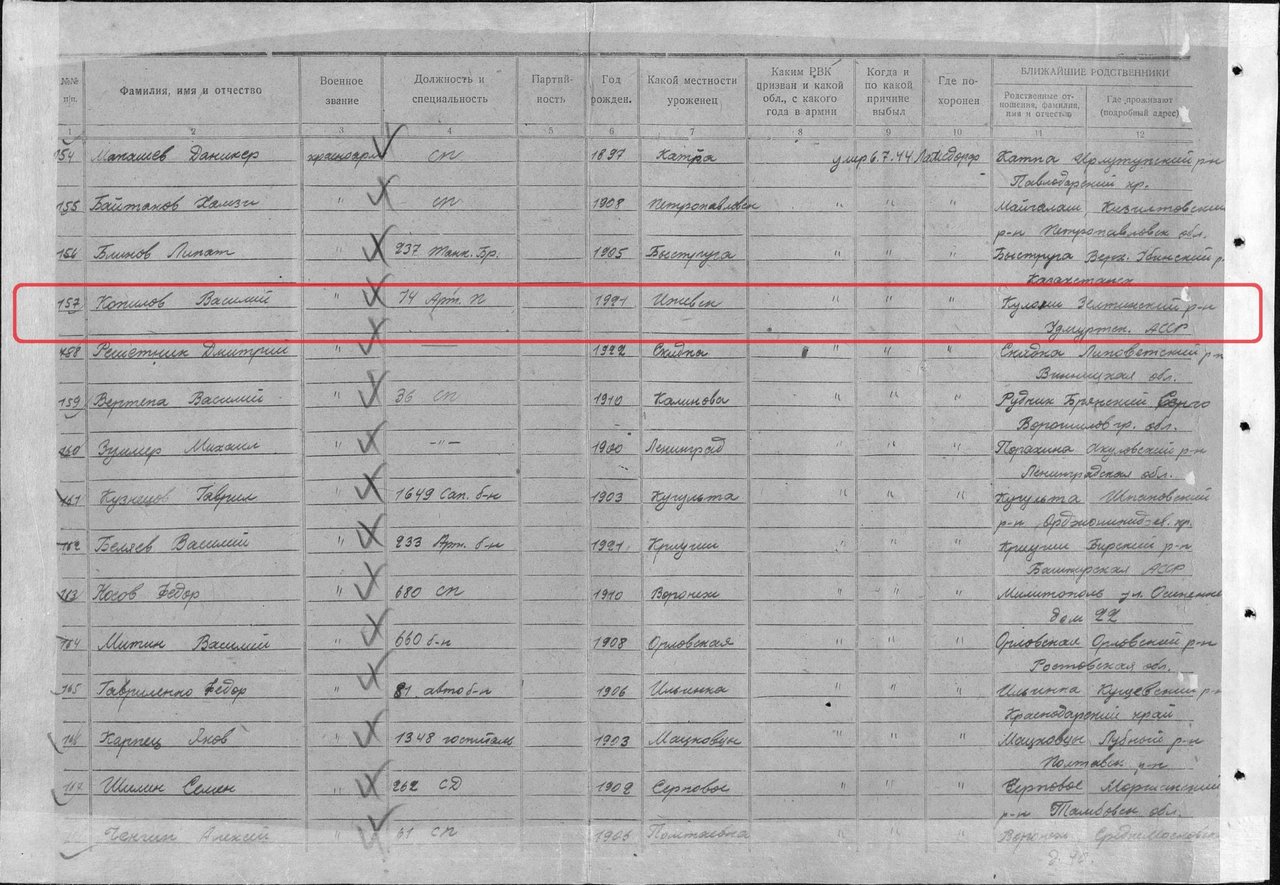 №№ п/п. Фамилия, имя и отчество Военное звание Должность и специальность Партий-ность Год рожден. Какой местности уроженец Каким РВК призван и какой обл., с какого года в армии Когда и по какой причине выбыл Где по-хоронен БЛИЖАЙШИЕ РОДСТВЕННИКИ
Родственные от-ношения, фамилия, имя и отчество Где проживают (подробный адрес)
1 2 3 4 5 6 7 8 9 10 11 12
154 Даникер красноарм. сп 1897 умер 6.7.44
Павлодарский кр.
155 Байтанов Хамзи " сп 1908 Петропавловск " " "
р-н Петропавловск обл.
156 Блинов Липат " 237 Танк. Бр. 1905 Быструга " " " Быструга Верх. Убинский р.
Казахстанск
157 Копилов Василий " 74 Арт. п 1921 Ижевск " " " р-н
Удмуртск. АССР
158 Решетник Дмитрий " — 1922 Скидка " " " Скидка Липоветский р-н
Винницкая обл.
159 Вертепа Василий " 36 сп 1910 Калинова " " " Рудник Брянский
Ворошиловгр. обл.
160 Михаил " -"- 1900 Ленинград " " " р-н
Ленинградская обл.
161 Кузнецов Гаврил " 1649 Сап. б-н 1903 Кугульта " " " Кугульта Шпаковский
р-н Орджоникидзев. кр.
162 Беляев Василий " 233 Арт. б-н 1921 " " " Бирский р-н
Башкирская АССР
163 Носов Федор " 680 сп 1910 Воронеж " " " Милитополь ул. Осипенко
дом 22
164 Митин Василий " 660 б-н 1908 Орловская " " " Орловская Орловский р-н
Ростовская обл.
165 Гавриленко Федор " 81 авто б-н 1906 Ильинка " " " Ильинка Кущевский р-н
Краснодарский край
166 Карпец Яков " 1348 госпиталь 1903 Мацковцы " " " Мацковцы Лубный р-н
Полтавск р-н
167 Шилин Семен " 262 СД 1902 Серповое " " " Серповое Моршанский
р-н Тамбовск обл.
Алексей " 61 сп " " " Воронеж